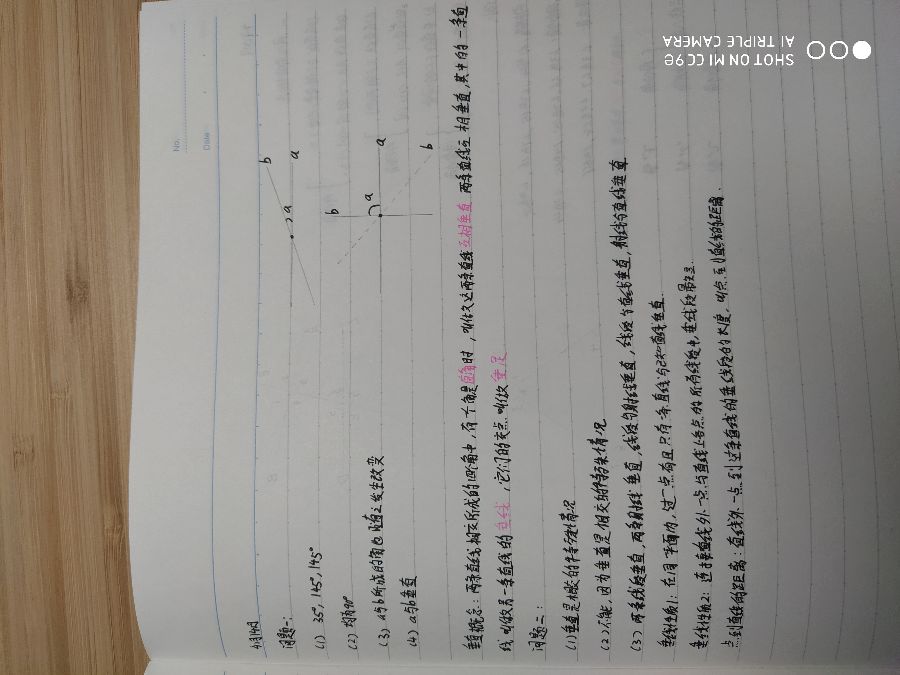 No.
Date
4月14日
问题一:
(1) 35°, 145°, 145°
(2) 均为90°
(3) a与b所成的角也随之发生改变
(4) a与b垂直
b
a
a
b
a
a
b
垂直概念:两条直线相交所成的四个角中,有一个角是直角时,叫做这两条直线互相垂直 两条直线互相垂直,其中的一条直
线叫做另一条直线的垂线,它们的交点叫做垂足
问题二:
(1) 垂直是相交的特殊情况
(2) 不能,因为垂直是相交的特殊情况
(3) 两条线段垂直,两条射线垂直,线段与射线垂直,线段与直线垂直,射线与直线垂直
垂线性质1:在同一平面内,过一点有且只有一条直线与已知直线垂直.
垂线性质2:连接直线外一点与直线上各点的所有线段中,垂线段最短.
点到直线的距离:直线外一点到这条直线的垂线段的长度,叫点到直线的距离.
SHOT ON MI CC9e
AI TRIPLE CAMERA